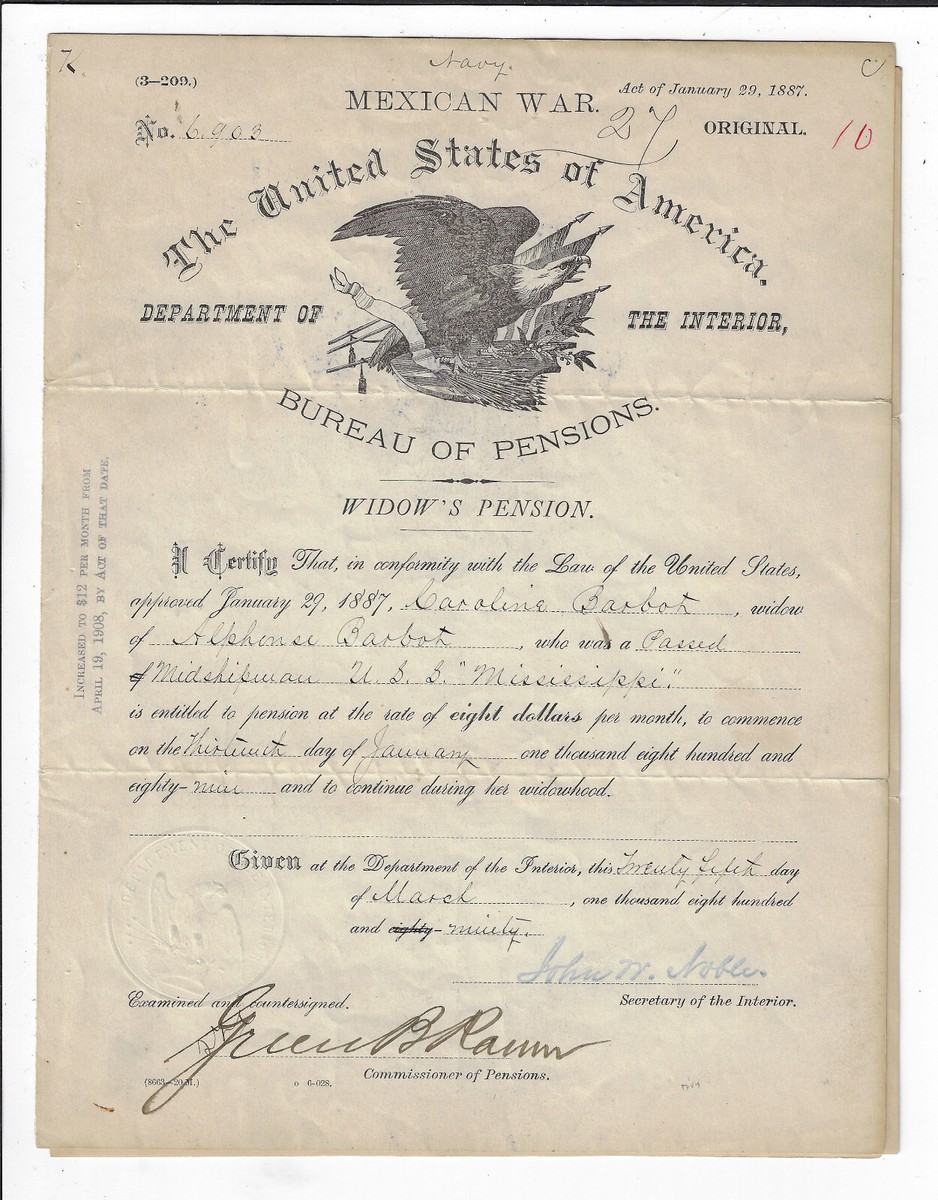 Navy.
(3—209.)
Act of January 29, 1887.
MEXICAN WAR.
27
No. 6,903
ORIGINAL.
10
The United States of America,
DEPARTMENT OF THE INTERIOR,
BUREAU OF PENSIONS.
WIDOW'S PENSION.
I Certify That, in conformity with the Law of the United States,
approved January 29, 1887, Caroline Barbot, widow
of Alphonse Barbot, who was a Passed
of Midshipman U. S. S. "Mississippi."
is entitled to pension at the rate of eight dollars per month, to commence
on the Thirteenth day of January one thousand eight hundred and
eighty-nine and to continue during her widowhood.
Given at the Department of the Interior, this Twenty fifth day
of March, one thousand eight hundred
and eighty- ninety.
John W. Noble.
Secretary of the Interior.
Examined and countersigned.
Green B Raum
Commissioner of Pensions.
(8663—20 M.)
o 6-028.
INCREASED TO $12 PER MONTH FROM
APRIL 19, 1908, BY ACT OF THAT DATE.